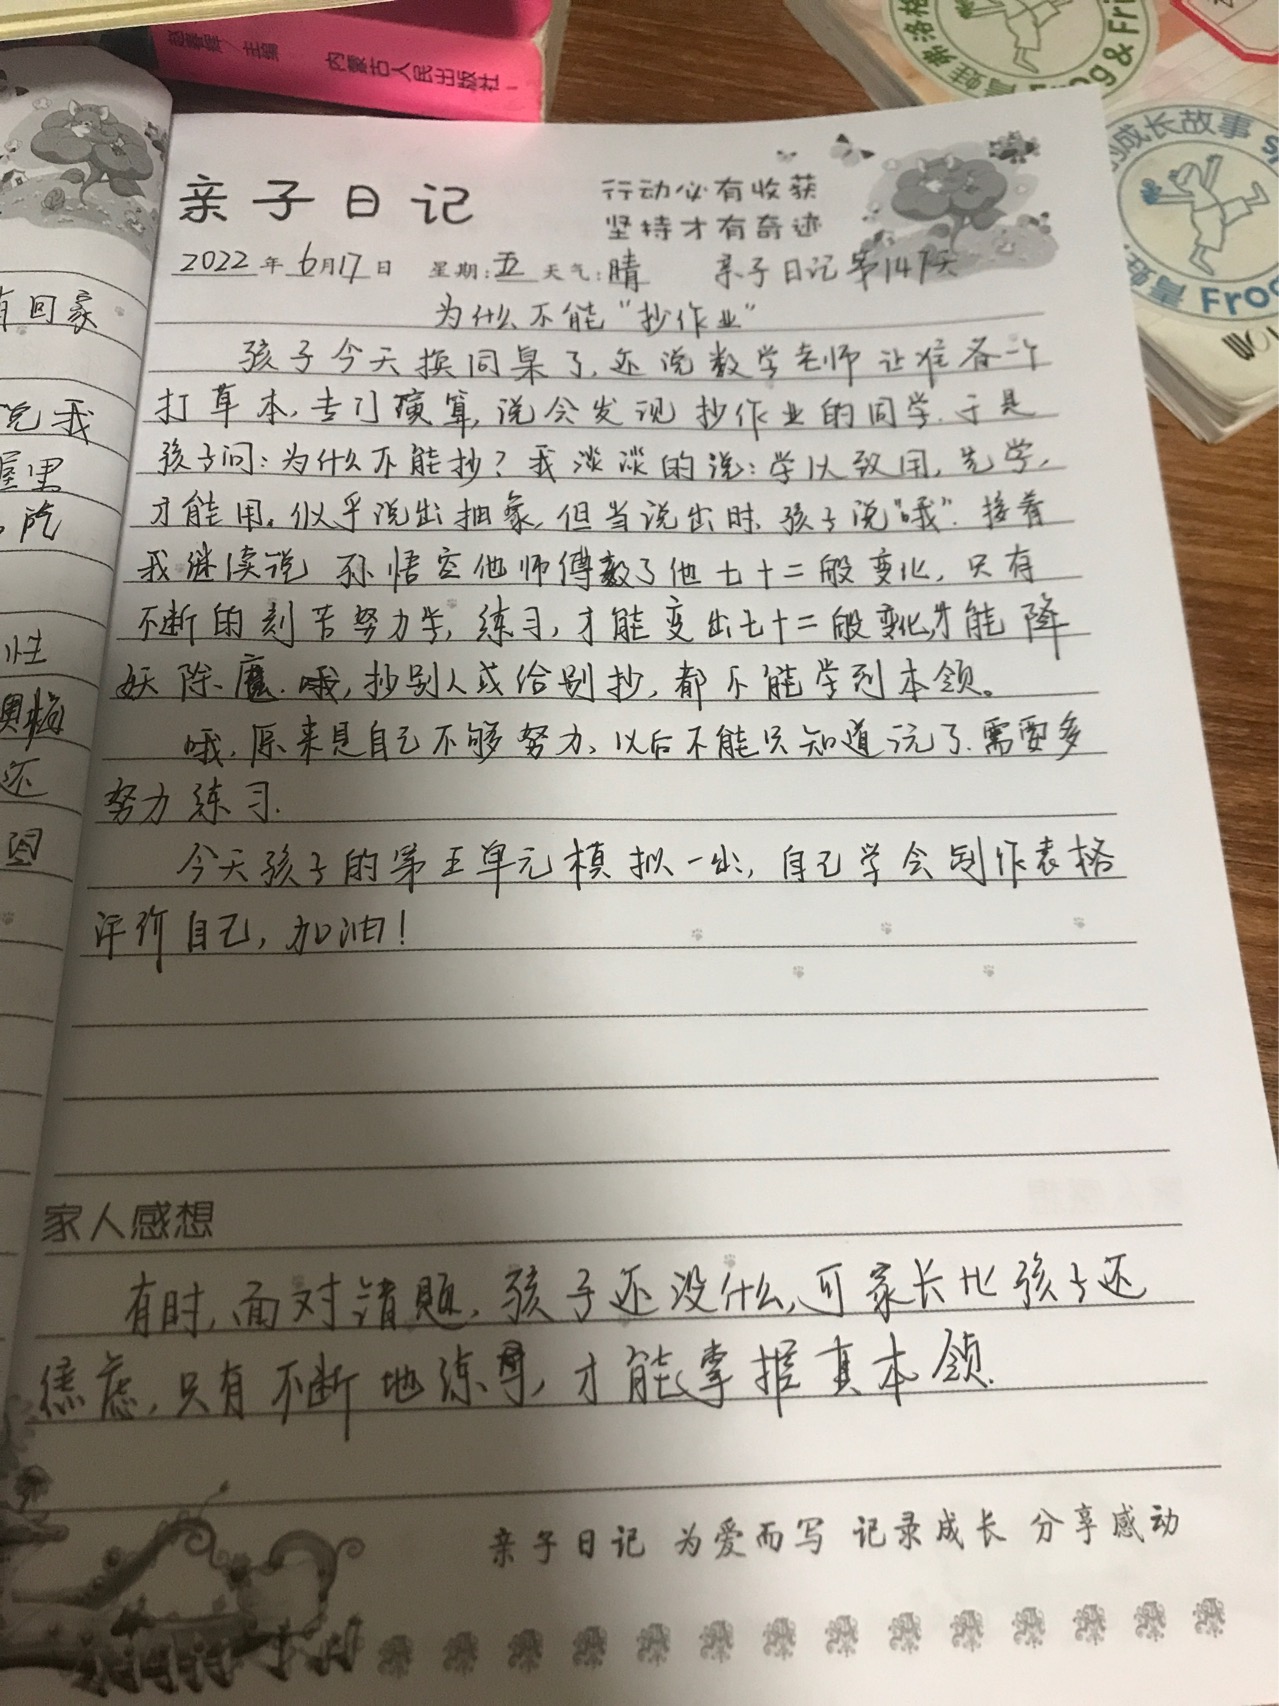 赵春辉/主编 内蒙古人民出版社
青蛙弗洛格
Frog & Fri
的成长故事
青蛙
Frog
有回家
说我
屋里
吃
性
还
亲子日记
行动必有收获
坚持才有奇迹
2022年6月17日 星期:五 天气:晴 亲子日记第147天
为什么不能“抄作业”
孩子今天换同桌了,还说数学老师让准备一个
打草本,专门演算,说会发现抄作业的同学.于是
孩子问:为什么不能抄?我淡淡的说:学以致用,先学,
才能用。似乎说出抽象,但当说出时,孩子说“哦”.接着
我继续说 孙悟空他师傅教了他七十二般变化,只有
不断的刻苦努力学,练习,才能变出七十二般变化,才能降
妖除魔.哦,抄别人或给别抄,都不能学到本领。
哦,原来是自己不够努力,以后不能只知道玩了.需要多
努力练习.
今天孩子的第五单元模拟一出,自己学会制作表格
评价自己,加油!
家人感想
有时,面对错题,孩子还没什么,可家长比孩子还
焦虑,只有不断地练习,才能掌握真本领.
亲子日记 为爱而写 记录成长 分享感动